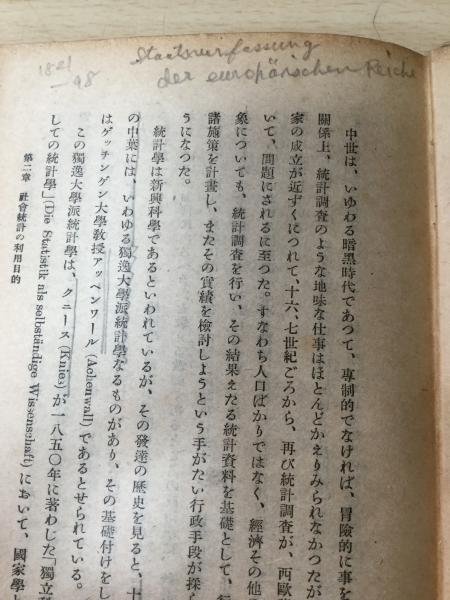 Staatsverfassung
der europäischen Reiche
1821
—98
中世は、いわゆる暗黒時代であつて、專制的でなければ、冒險的に事を
關係上、統計調査のような地味な仕事はほとんどかえりみられなかつたが
家の成立が近ずくにつれて、十六、七世紀ごろから、再び統計調査が、西歐
いて、問題にされるに至つた。すなわち人口ばかりではなく、經濟その他の
象についても、統計調査を行い、その結果えたる統計資料を基礎として、行
諸施策を計畫し、またその實績を檢討しようという手がたい行政手段が採ら
うになつた。
統計學は新興科學であるといわれているが、その發達の歷史を見ると、十
の中葉には、いわゆる獨逸大學派統計學なるものがあり、その基礎付けをし
はゲッチンゲン大學敎授アッペンワール(Achenwall)であるとせられている。
この獨逸大學派統計學は、クニース(Knies)が一八五〇年に著わした「獨立科
しての統計學」(Die Statistik als selbständige Wissenschaft)において、國家學と
第二章 社會統計の利用目的